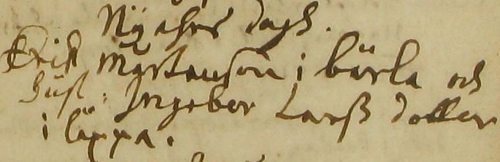 Nyåhrs dagh.
Erich Mårtensson i bärla och
hust. Ingebor Larß dotter
i läppa.